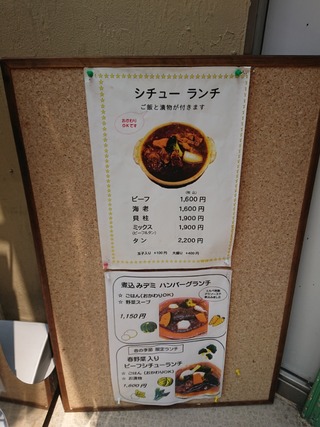 シチュー ランチ
ご飯と漬物が付きます
おかわり
OKです
(税込)
ビーフ 1,600円
海老 1,600円
貝柱 1,900円
ミックス 1,900円
(ビーフ&タン)
タン 2,200円
玉子入り +100円 大盛り +400円
煮込みデミ ハンバーグランチ
☆ ごはん(おかわりOK)
☆ 野菜スープ
1,150円
春の季節 限定ランチ
春野菜入り
ビーフシチューランチ
☆ ごはん(おかわりOK)
☆ お漬物
1,800円